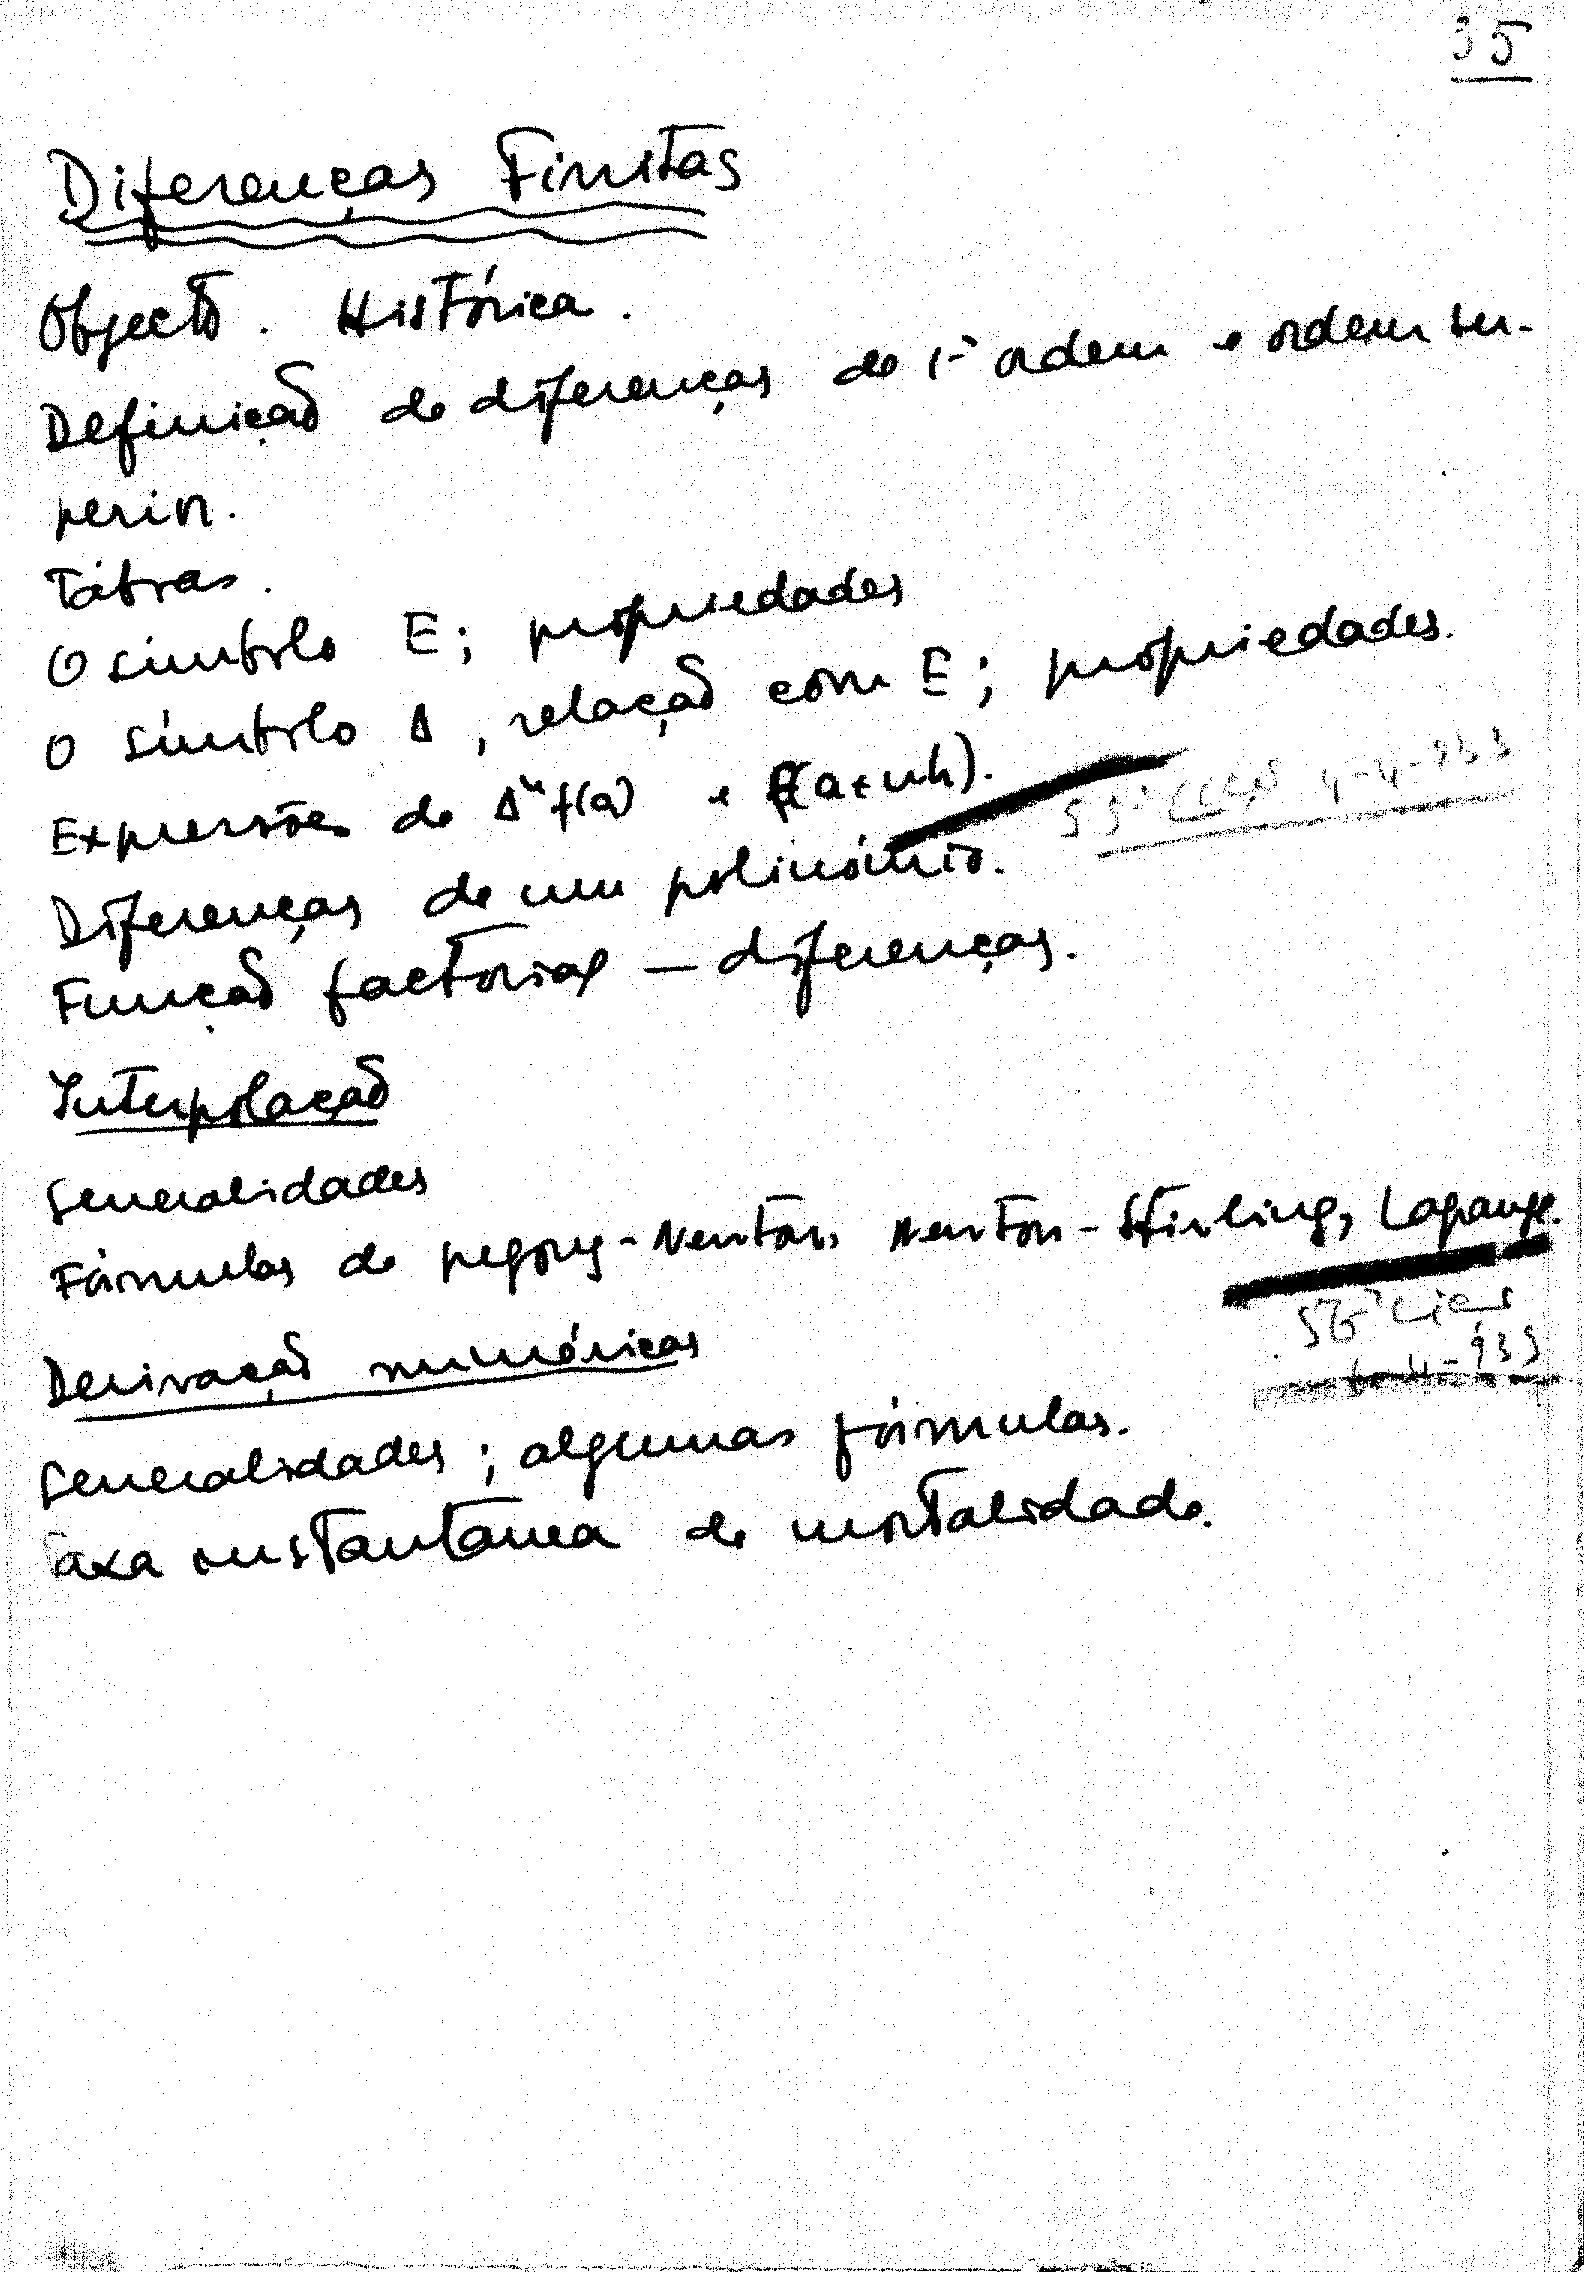 35
Diferenças Finitas
Objecto. Histórica.
Definição de diferenças de 1ª ordem e ordem su-
perior.
Tábuas.
O símbolo E; propriedades
O símbolo Δ, relação com E; propriedades.
Expressões de Δⁿf(a) e f(a+nh).
55ª Lição 4-4-933
Diferenças de um polinómio.
Função factorial — diferenças.
Interpolação
Generalidades
Fórmulas de Gregory-Newton, Newton-Stirling, Lagrange.
56ª
4-933
Derivação numéricas
Generalidades; algumas fórmulas.
Taxa instantânea de mortalidade.